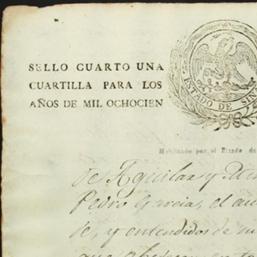 SELLO CUARTO UNA
CUARTILLA PARA LOS
AÑOS DE MIL OCHOCIEN
ESTADO DE
Habilitado por el Estado de
de Aguilar y
Pedro Garcia, el
de, y entendidos de
que